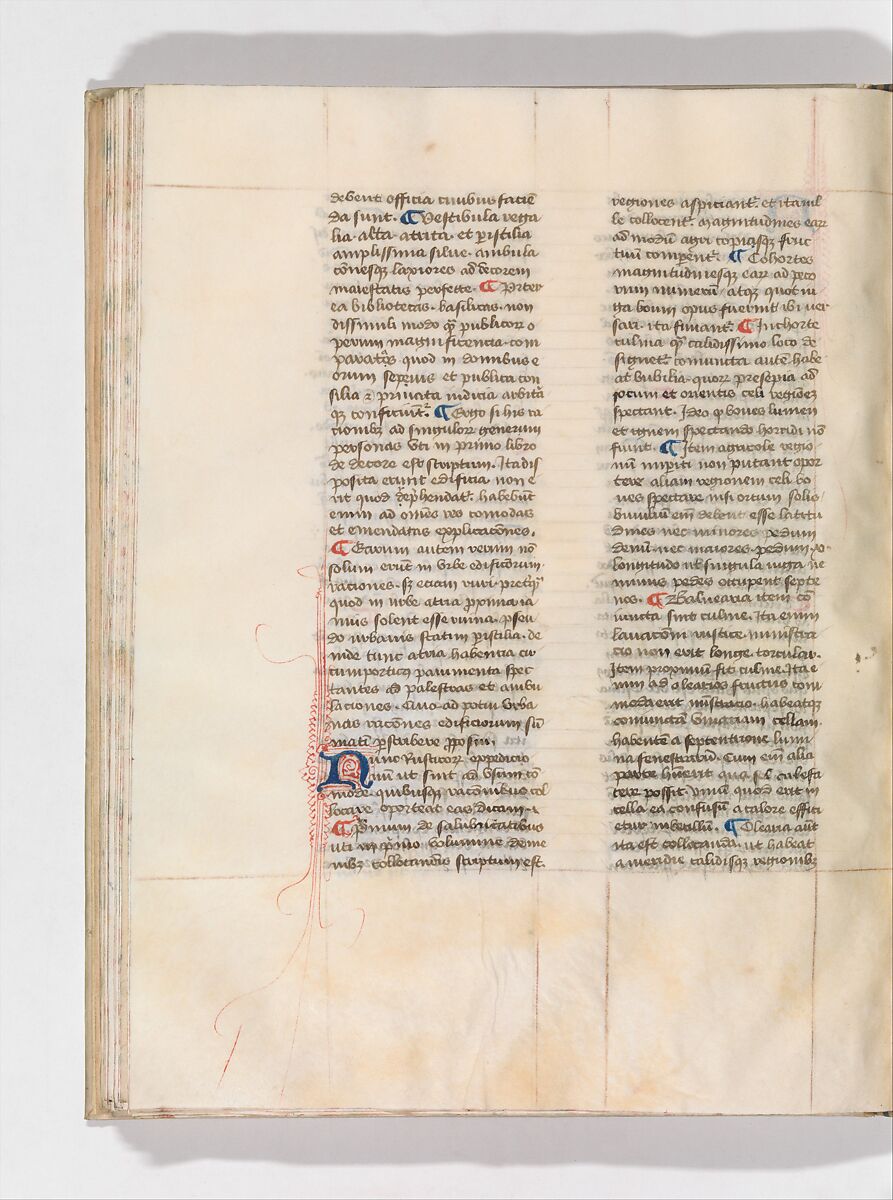 debent officia civibus facie͂
da sunt. ¶ Vestibula rega
lia. alta. atrita. et p̲istilia
amplissima silue. ambula
co͂nesq; laxiores ad decorem
maiestatis perfecte. ¶ Preter
ea bibliotecas. basilicas. non
dissimili modo q͂ publicor͂ o
perum magnificencia. com
paratas quod in domibus e
orum sepeius et publica con
silia ⁊ privata iudicia arbit͂a
q; conficiunt͛. ¶ Ergo si his ra
cionib; ad singulor͂ generum
personas uti in primo libro
de decoro est scriptum. Ita dis
posita erunt edificia non e
rit quod dep̲hendat͛. habebu͂t
enim ad om͂es res comodas
et emendatas explicaco͂nes.
¶ Earum autem rerum no͂
solum eru͂t in urbe edificiorum
raciones. s; eciam ruri. pret͛q͂
quod in urbe atria p̲xima ia
nuis solent esse ruina. pseu
do urbanis statim p̲istilia. de
inde tunc atria habencia cir
cumporticus pauimenta spec
tantes ad palestras et ambu
laciones. Quo ad potui urba
nas raco͂nes edificiorum su͂
mati͂ p̲scribere p̲posui.
Nunc Rusticor͂ expedicio
num ut sint ad usum co͂
mode quibusq; racionibus col
locare oporteat eas dicam.
¶ Primum de salubritatibus
uti in p̲mo volumine de me
nib; collocandis scriptum est.
regiones aspiciant͛. et ita uil
le collocent͛. magnitudines ear͂
ad modu͂ agri copiasq; fruc
tuu͂ comparent͛. ¶ Cohortes
magnitudinesq; ear͂ ad peco
rum numeru͂. atq; quot iu
ga boum opus fuerint ibi ver
sari. ita finiant͛. ¶ In chorte
culina q͂ calidissimo loco de
signet͛. coniuncta aute͂ habe
at͛ bubilia. quor͂ presepia ad
focum et orientis celi regiones
spectant. Ideo q͂ boues lumen
et ignem spectando horridi no͂
fiunt. ¶ Item agricole regio
num inpiti non putant opor
tere aliam regionem celi bo
ues spectare nisi ortum solis
bubiliu͂ em͂ debent esse latitu
dines nec minores pedum
denu͂. nec maiores. pedum. xv.
longitudo ut singula iuga ne
minus pedes occupent septe
nos. ¶ Balnearia item co͂
iuncta sint culine. Ita enim
lauaco͂m rustice ministra
cio non erit longe. torcular.
Item proximu͂ sit culine. Ita e
nim ad olearios fructus com
moda erit mi͂stracio. habeatq;
coniuncta͂ vinariam cellam.
habente͂ a septentrione lumi
na fenestraru͂. Cum em͂ alia
parte habuerit qua sol calefa
cere possit. vinu͂ quod erit in
cella ea confusu͂ a calore effici
etur imbecillu͂. ¶ Olearia aut͂
ita est collocanda. ut habeat
a meridie calidisq; regionib;